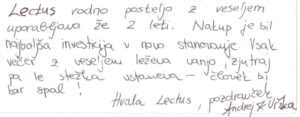 Lectus vodno posteljo z veseljem
uporabljava že 2 leti. Nakup je bil
najboljša investicija v novo stanovanje. Vsak
večer z veseljem leževa vanjo, zjutraj
pa le stežka vstaneva – človek bi
kar spal!
Hvala Lectus, pozdravček
Andrej &